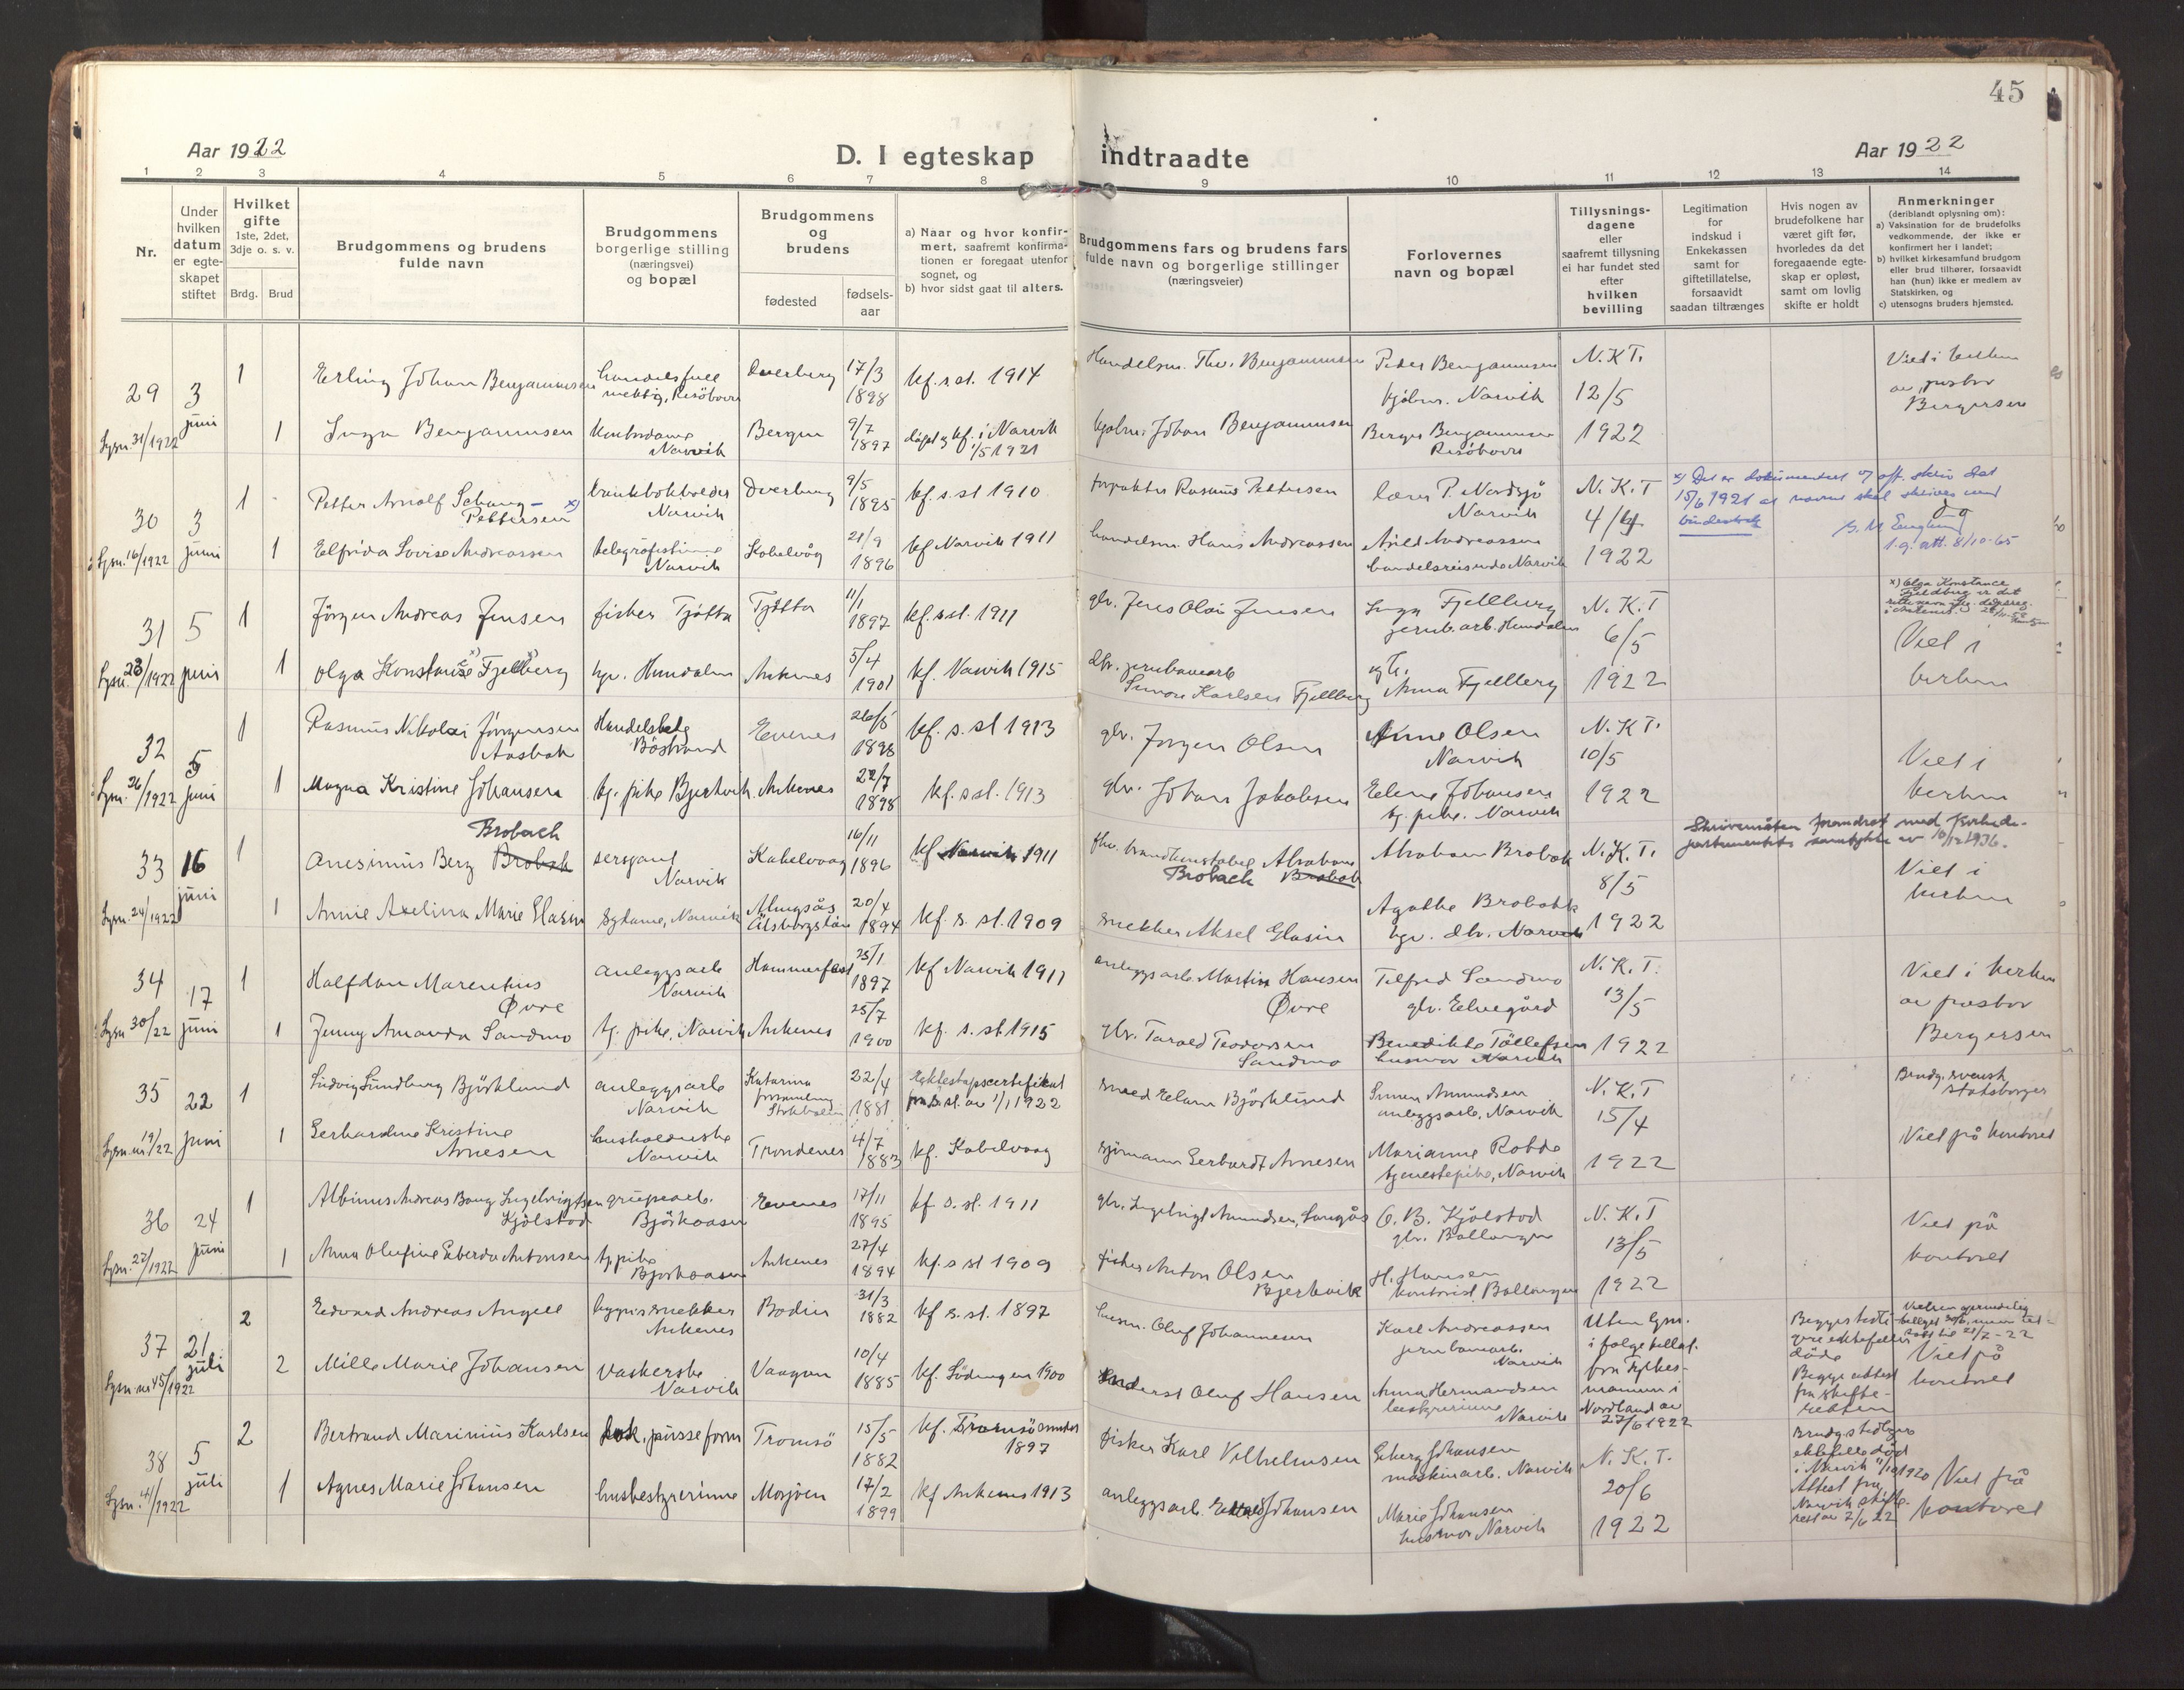 45
Aar 1922
D. I egteskap indtraadte
Aar 1922
1 2 3 4 5 6 7 8 9 10 11 12 13 14
Nr.
Under hvilken datum er egteskapet stiftet
Hvilket gifte 1ste, 2det, 3dje o. s. v.
Brdg. Brud
Brudgommens og brudens fulde navn
Brudgommens borgerlige stilling (næringsvei) og bopæl
Brudgommens og brudens
fødested
fødselsaar
a) Naar og hvor konfirmert, saafremt konfirmationen er foregaat utenfor sognet, og
b) hvor sidst gaat til alters.
Brudgommens fars og brudens fars fulde navn og borgerlige stillinger (næringsveier)
Forlovernes navn og bopæl
Tillysningsdagene eller saafremt tillysning ei har fundet sted efter hvilken bevilling
Legitimation for indskud i Enkekassen samt for giftetillatelse, forsaavidt saadan tiltrænges
Hvis nogen av brudefolkene har været gift før, hvorledes da det foregaaende egteskap er opløst, samt om lovlig skifte er holdt
Anmerkninger (deriblandt oplysning om):
a) Vaksination for de brudefolks vedkommende, der ikke er konfirmert her i landet;
b) hvilket kirkesamfund brudgom eller brud tilhører, forsaavidt han (hun) ikke er medlem av Statskirken, og
c) utensogns bruders hjemsted.
29 3 juni 1 Erling Johan Benjaminsen handelsfullmektig, Risöhavn Dverberg 17/3 1898 kf. s. st. 1914 Handelsm. Thv. Benjaminsen Peder Benjaminsen kjöbm. Narvik N.K.T. 12/5 1922 Viet i kirken av pastor Bergersen
Lysn. 31/1922 1 Inga Benjaminsen Kontordame Narvik Bergen 9/7 1897 döpt og kf. i Narvik 1/5 1921 kjøbm. Johan Benjaminsen Berger Benjaminsen Risöhavn
30 3 juni 1 Petter Arnolf Schang- Pettersen x) bankbokholder Narvik Dverberg 9/5 1895 kf. s. st 1910 forpakter Rasmus Pettersen lærer P. Nordsjö Narvik N.K.T 4/4 1922
x) Det er dokumentert og off. skriv dat 15/6 1921 at navnet skal skrives med bindestrek 8/10-65
Lysn. 16/1922 1 Elfrida Lovise Andreassen telegrafistinne Narvik Kabelvåg 21/9 1896 kf Narvik 1911 handelsm. Hans Andreassen Arild Andreassen handelsreisende Narvik
31 5 juni 1 Jörgen Andreas Jensen fisker Tjötta Tjötta 11/1 1897 kf. s. st. 1911 gbr. Jens Olai Jensen Inga Fjellberg jernb. arb. Hundalen N.K.T 6/5 1922 Viet i kirken
x) Olga Konstance Fjeldberg er det rette navn
Lysn. 23/1922 1 Olga Konstanse Fjellberg hgr. Hundalen Ankenes 5/4 1901 kf. Narvik 1915 dbr. jernbanearb Simon Karlsen Fjellberg Anna Fjellberg
32 5 juni 1 Rasmus Nikolai Jörgensen Aasbak Handelsbetj Böstrand Evenes 26/5 1898 kf. s. st 1913 gbr. Jörgen Olsen Anne Olsen Narvik N.K.T. 10/5 1922 Viet i kirken
Lysn. 26/1922 1 Magna Kristine Johansen tj. pike Bjerkvik Ankenes 22/7 1898 kf. s. st. 1913 gbr. Johan Jakobsen Elene Johansen tj. pike. Narvik
33 16 juni 1 Anesimus Berg Brobak Brobach sersjant Narvik Kabelvaag 16/11 1896 kf Narvik 1911 fhv. brandkonstabel Abraham Brobak Brobach Abraham Brobak N.K.T. 8/5 1922 Viet i kirken
Skrivemåten forandret med Kirkedepartementets samtykke av 10/12 1936.
Lysn. 24/1922 1 Annie Axelina Marie Glasin sydame, Narvik Alingsås Älvsborgslän 20/4 1894 kf. s. st. 1909 snekker Aksel Glasin Agathe Brobakk hgr. dtr. Narvik
34 17 juni 1 Halfdan Marentius Øvre anleggsarb Narvik Hammerfest 25/1 1897 kf Narvik 1911 anleggsarb. Martin Hansen Øvre Tilfred Sandmo gbr. Elvegård N.K.T. 13/5 1922 Viet i kirken av pastor Bergersen
Lysn 30/22 1 Jenny Amanda Sandmo tj. pike, Narvik Ankenes 25/7 1900 kf. s. st. 1915 gbr. Tarald Teodorsen Sandmo Benedikte Töllefsen husmor Narvik
35 22 juni 1 Ludvig Lundberg Björklund anleggsarb Narvik Katarina forsamling Stokholm 22/4 1881 Ektestapscertifikat fra s. st. av 1/1 1922 smed Elam Björklund Simon Amundsen anleggsarb, Narvik N.K.T 15/4 1922 Brudg. svensk statsborger Viet på kontoret
Lysn. nr. 19/22 1 Gerhardine Kristine Arnesen husholderske Narvik Trondenes 4/7 1883 kf. Kabelvaag sjömann Gerhardt Arnesen Marianne Rohde tjenestepike, Narvik
36 24 juni 1 Albinus Andreas Bang Ingebrigtsen Kjölstad grubearb. Björkaasen Evenes 17/11 1895 kf s. st. 1911 gbr. Ingebrigt Amundsen, Langås O. B. Kjölstad gbr. Ballangen N.K.T 13/5 1922 Viet på kontoret
Lysn. 27/1922 1 Anna Olufine Eberda Antonsen tj. pike Björkaasen Ankenes 27/4 1894 kf. s st 1909 fisker Anton Olsen Bjerkvik H. Hansen kontorist Ballangen
37 21 juli 2 Edvard Andreas Angell bygn.snekker Ankenes Bodin 31/3 1882 kf s. st. 1897 husm. Oluf Johannesen Karl Andreassen jernbanearb. Narvik Uten lysn. i følge tillat. fra Fylkesmannen i Nordland av 27/6 1922 Begges tidligere ektefeller döde Begge attest fra skifteretten Viet på kontoret
Lysn nr 45/1922 2 Mille Marie Johansen vaskerske Narvik Vaagan 10/4 1885 kf. Lödingen 1900 Oluf Hansen Anna Hermandsen bestyrerinne Narvik
38 5 juli 2 Bertrand Marinius Karlsen lok. pusseform Tromsö 15/5 1882 kf. Tromsö 1897 fisker Karl Vilhelmsen Eberg Johansen maskinarb. Narvik N.K.T. 20/6 1922 Brudg. stidligere ektefelle död i Narvik 1920 Attest fra Narvik skifterett av 2/6 22 Viet på kontoret
Lysn. 41/1922 1 Agnes Marie Johansen husbestyrerinne Mosjöen 17/2 1899 kf Ankenes 1913 anleggsarb. Johansen Marie Johansen husmor Narvik